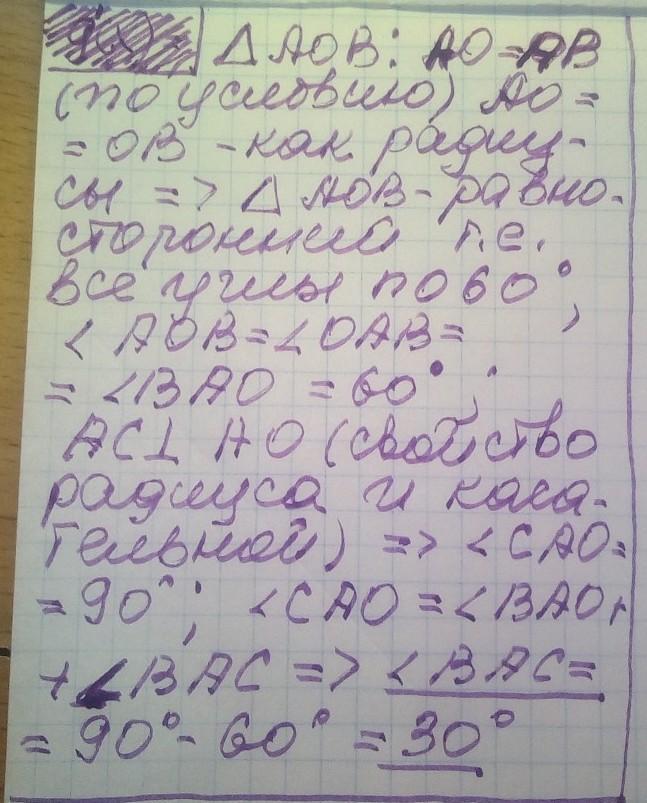 △AOB: AO=AB
(по условию) AO=
=OB -как радиу-
сы => △AOB-равно-
сторонний т.е.
все углы по 60°,
∠AOB=∠OAB=
=∠BAO =60°;
AC⊥AO (свойство
радиуса и каса-
тельной) => ∠CAO=
=90°; ∠CAO=∠BAO+
+∠BAC => ∠BAC=
=90°-60°=30°